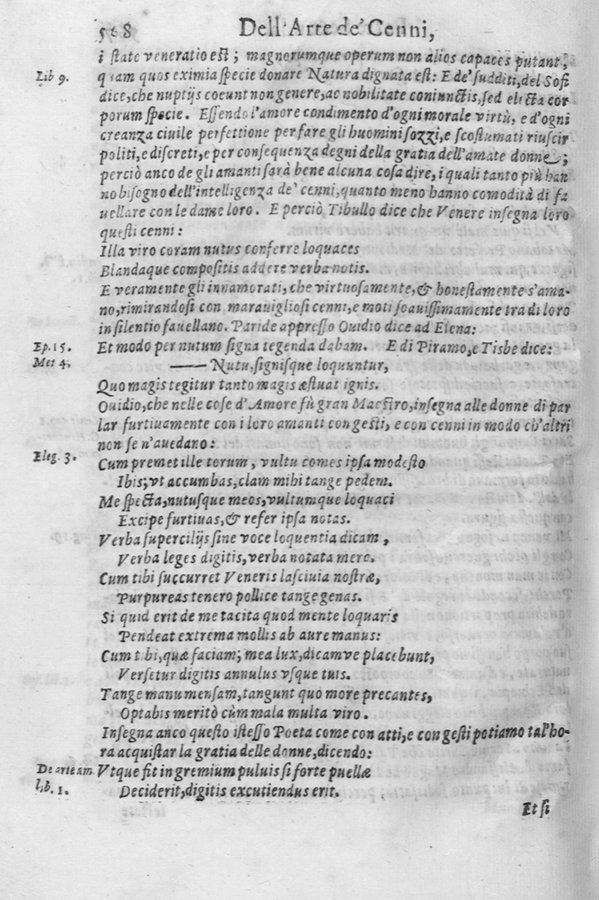 568 Dell'Arte de' Cenni,
i state veneratio est; magnorumque operum non alios capaces putant,
Lib 9. quam quos eximia specie donare Natura dignata est: E de' sudditi, del Sofi
dice, che nuptijs coeunt non genere, ac nobilitate coniunctis, sed electa cor
porum specie. Essendo l'amore condimento d'ogni morale virtù, e d'ogni
creanza ciuile perfettione per fare gli huomini sozzi, e scostumati riuscir
politi, e discreti, e per consequenza degni della gratia dell'amate donne;
perciò anco de gli amanti sarà bene alcuna cosa dire, i quali tanto più han
no bisogno dell'intelligenza de' cenni, quanto meno hanno comodità di fa
uellare con le dame loro. E perciò Tibullo dice che Venere insegna loro
questi cenni:
Illa viro coram nutus conferre loquaces
Blandaque compositis addere verba notis.
E veramente gli innamorati, che virtuosamente, & honestamente s'ama-
no, rimirandosi con marauigliosi cenni, e moti soauissimamente tra di loro
in silentio fauellano. Paride appresso Ouidio dice ad Elena:
Ep. 15. Et modo per nutum signa tegenda dabam. E di Piramo, e Tisbe dice:
Met 4. —— Nutu, signisque loquuntur,
Quo magis tegitur tanto magis æstuat ignis.
Ouidio, che nelle cose d'Amore fù gran Maestro, insegna alle donne di par
lar furtiuamente con i loro amanti con gesti, e con cenni in modo ch'altri
non se n'auedano:
Eleg. 3. Cum premet ille torum, vultu comes ipsa modesto
Ibis; vt accumbas, clam mihi tange pedem.
Me specta, nutusque meos, vultumque loquaci
Excipe furtiuas, & refer ipsa notas.
Verba supercilijs sine voce loquentia dicam,
Verba leges digitis, verba notata mero.
Cum tibi succurret Veneris lasciuia nostræ,
Purpureas tenero pollice tange genas.
Si quid erit de me tacita quod mente loquaris
Pendeat extrema mollis ab aure manus:
Cum tibi, quæ faciam; mea lux, dicamve placebunt,
Versetur digitis annulus vsque tuis.
Tange manu mensam, tangunt quo more precantes,
Optabis meritò cùm mala multa viro.
Insegna anco questo istesso Poeta come con atti, e con gesti potiamo tal'ho-
ra acquistar la gratia delle donne, dicendo:
De arte am. Vtque fit in gremium puluis si forte puellæ
lib. 1. Deciderit, digitis excutiendus erit.
Et si